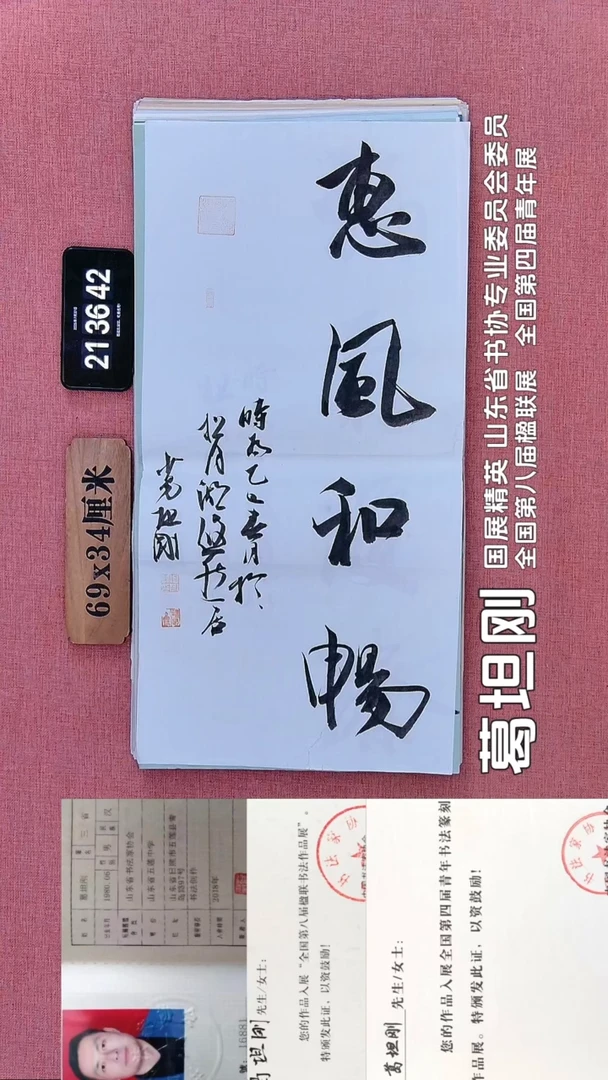 惠風和暢
時在乙巳春月於
松月湖悠然居
葛坦剛
21 36 42
69x34厘米
葛坦刚
国展精英 山东省书协专业委员会委员
全国第八届楹联展 全国第四届青年展
葛坦刚
1980.06
男
汉
山东省书法家协会
山东省五莲中学
书法创作
2018年
葛坦刚 先生/女士:
您的作品入展“全国第八届楹联书法作品展”。
特颁发此证,以资鼓励!
葛坦刚 先生/女士:
您的作品入展全国第四届青年书法篆刻
作品展。特颁发此证,以资鼓励!